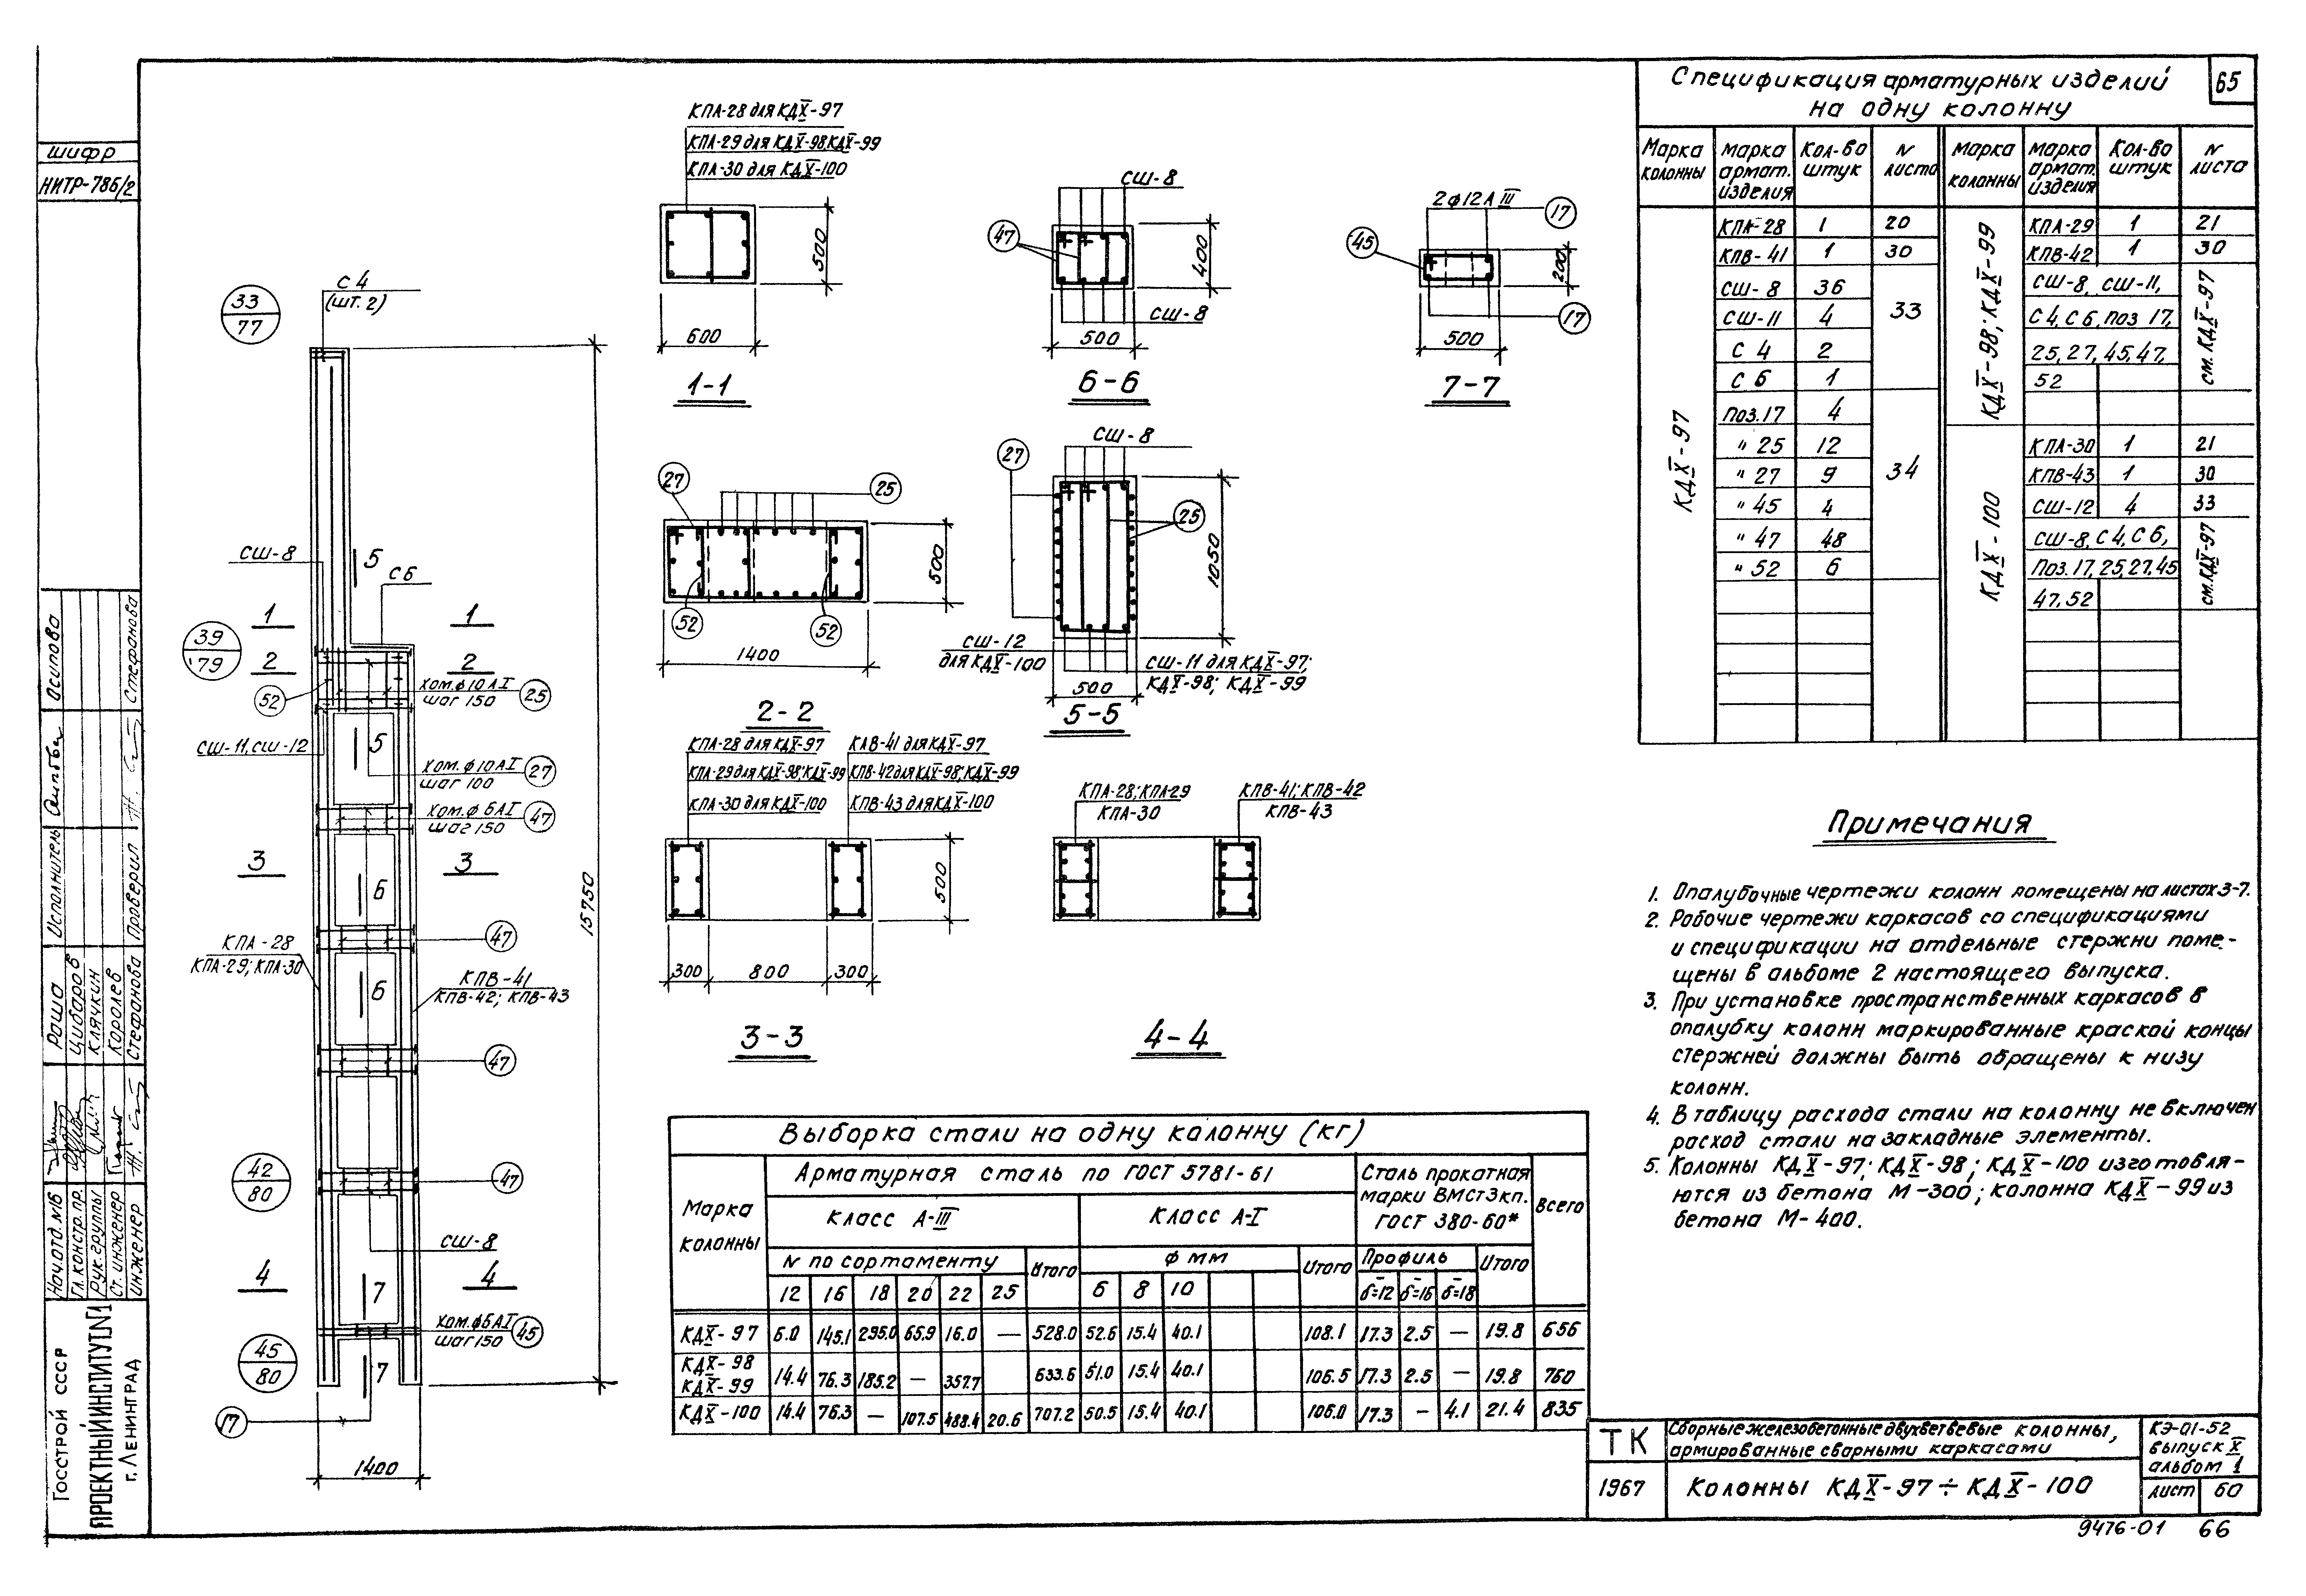 65
Спецификация арматурных изделий
на одну колонну
Марка колонны | Марка армат. изделия | Кол-во штук | N листа | Марка колонны | Марка армат. изделия | Кол-во штук | N листа
КДX-97
КПА-28 1 20
КПВ-41 1 30
СШ-8 36
СШ-11 4
33
С 4 2
С 6 1
Поз.17 4
" 25 12
" 27 9
34
" 45 4
" 47 48
" 52 6
КДX-98; КДX-99
КПА-29 1 21
КПВ-42 1 30
СШ-8, СШ-11,
С4, С6, поз 17,
25, 27, 45, 47,
52
см. КДX-97
КДX-100
КПА-30 1 21
КПВ-43 1 30
СШ-12 4 33
СШ-8, С4, С6,
Поз.17, 25, 27, 45
47, 52
см. КДX-97
шифр
НИТР-786/2
33
77
С 4
(шт. 2)
СШ-8
5
С6
1 1
39
79
2 2
52
хом.ϕ10АI
шаг 150
25
СШ-11, СШ-12
5
хом.ϕ10АI
шаг 100
27
хом.ϕ6АI
шаг 150
47
3 3
6
КПА-28
КПА-29; КПА-30
47
6
КПВ-41
КПВ-42; КПВ-43
47
42
80
47
СШ-8
4 4
7
хом.ϕ6АI
шаг 150
45
45
80
7
17
1400
15750
КПА-28 для КДX-97
КПА-29 для КДX-98; КДX-99
КПА-30 для КДX-100
500
600
1-1
СШ-8
47
400
СШ-8
500
6-6
2ϕ12А III
17
45
200
17
500
7-7
27
25
500
52
52
1400
2-2
СШ-8
27
25
1050
СШ-12
для КДX-100
СШ-11 для КДX-97;
КДX-98; КДX-99
500
5-5
КПА-28 для КДX-97
КПА-29 для КДX-98; КДX-99
КПА-30 для КДX-100
КПВ-41 для КДX-97
КПВ-42 для КДX-98; КДX-99
КПВ-43 для КДX-100
500
300 800 300
3-3
КПА-28; КПА-29
КПА-30
КПВ-41; КПВ-42
КПВ-43
4-4
Примечания
1. Опалубочные чертежи колонн помещены на листах 3-7.
2. Рабочие чертежи каркасов со спецификациями
и спецификации на отдельные стержни поме-
щены в альбоме 2 настоящего выпуска.
3. При установке пространственных каркасов в
опалубку колонн маркированные краской концы
стержней должны быть обращены к низу
колонн.
4. В таблицу расхода стали на колонну не включен
расход стали на закладные элементы.
5. Колонны КДX-97; КДX-98; КДX-100 изготовля-
ются из бетона М-300; колонна КДX-99 из
бетона М-400.
Выборка стали на одну колонну (кг)
Марка колонны | Арматурная сталь по ГОСТ 5781-61 | Сталь прокатная марки ВМСт3кп. ГОСТ 380-60* | Всего
Класс А-III | Класс А-I
N по сортаменту | Итого | ϕ мм | Итого | Профиль | Итого
12 16 18 20 22 25 6 8 10 δ=12 δ=16 δ=18
КДX-97 6.0 145.1 295.0 65.9 16.0 — 528.0 52.6 15.4 40.1 108.1 17.3 2.5 — 19.8 656
КДX-98
КДX-99 14.4 76.3 185.2 — 357.7 633.6 51.0 15.4 40.1 106.5 17.3 2.5 — 19.8 760
КДX-100 14.4 76.3 — 107.5 488.4 20.6 707.2 50.5 15.4 40.1 106.0 17.3 — 4.1 21.4 835
ТК
1967
Сборные железобетонные двухветвевые колонны,
армированные сварными каркасами
Колонны КДX-97÷КДX-100
КЭ-01-52
выпуск X
альбом 1
лист 60
9476-01 66
Госстрой СССР
ПРОЕКТНЫЙ ИНСТИТУТ №1
г. Ленинград
Нач.отд. МБ Раша
Гл.констр.пр. Цибаров
Рук.группы Клячкин
Ст.инженер Королев
Инженер Стефанова
Исполнитель Осипова
Проверил Стефанова